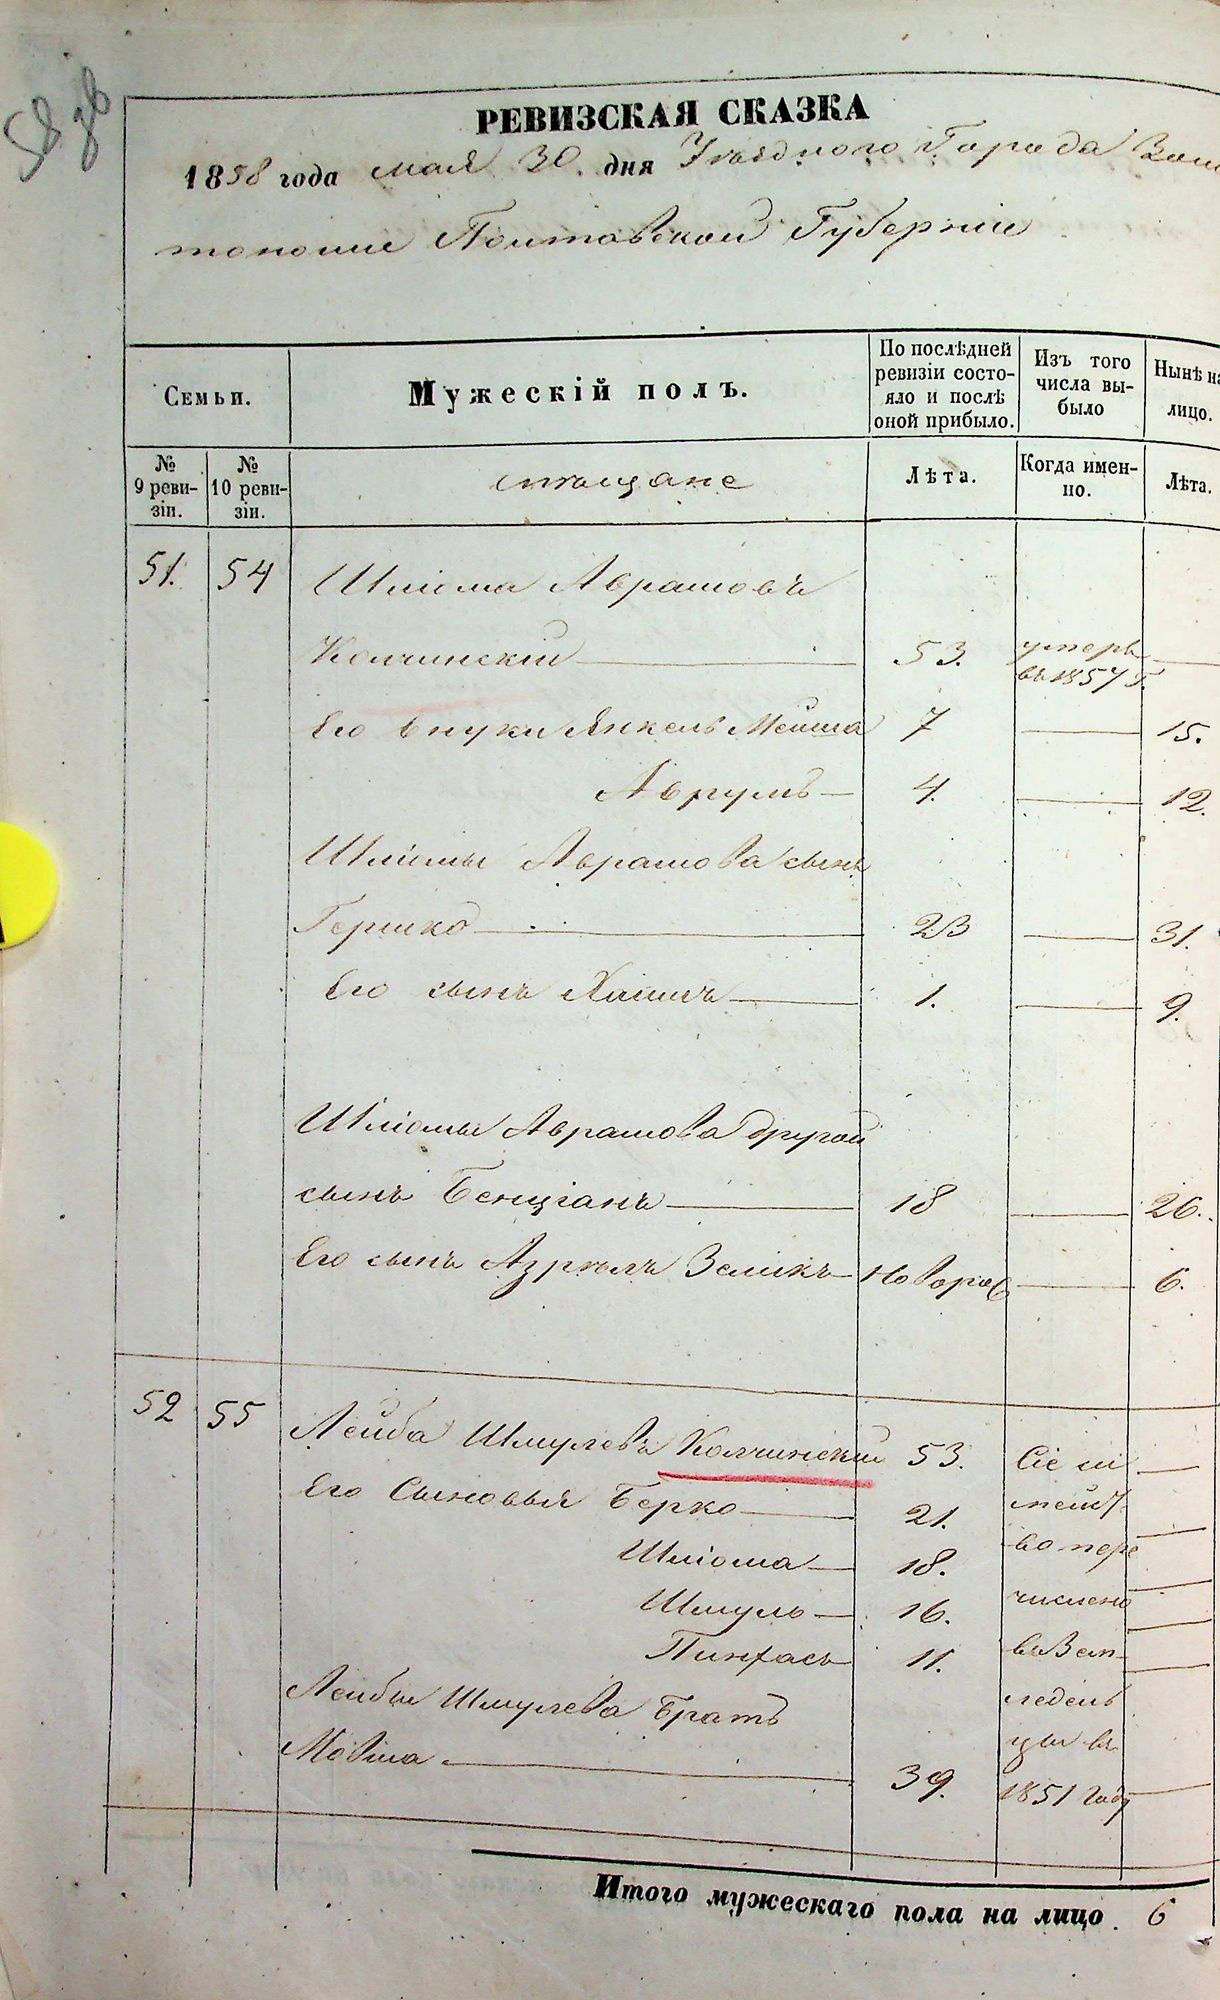 58
РЕВИЗСКАЯ СКАЗКА
1858 года мая 30 дня Уѣзднаго Города Золо
тоноши Полтавской Губерніи
Семьи.
Мужескій полъ.
По послѣдней ревизіи состояло и послѣ оной прибыло.
Изъ того числа выбыло
Нынѣ на лицо.
№ 9 ревизіи.
№ 10 ревизіи.
мѣщане
Лѣта.
Когда именно.
Лѣта.
51. 54 Шліома Аврамовъ
Колчинскій 53. умеръ
въ 1857 г.
Его внуки Янкель Мейша 7 15.
Аврумъ 4. 12.
Шліомы Аврамова сынъ
Гершко 23 31.
Его сынъ Хаимъ 1. 9.
Шліомы Аврамова другой
сынъ Бенціанъ 18 26.
Его сынъ Азріилъ Зеликъ новорож 6.
52 55 Лейба Шмулевъ Колчинскій 53. Сіе се
Его Сыновья Берко 21. мейст
Шліома 18. во пере
Шмуль 16. числено
Пинхасъ 11. въ Зем
Лейбы Шмулева Братъ ледель
Мовша 39. цы въ
1851 году
Итого мужескаго пола на лицо. 6